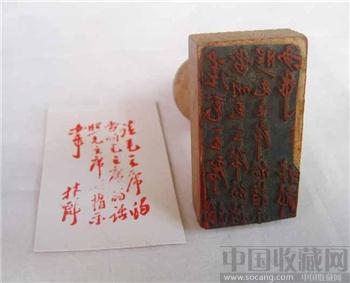 读毛主席的
书听毛主席的话
照毛主席的指示
办事
林彪
中国收藏网
www.socang.com